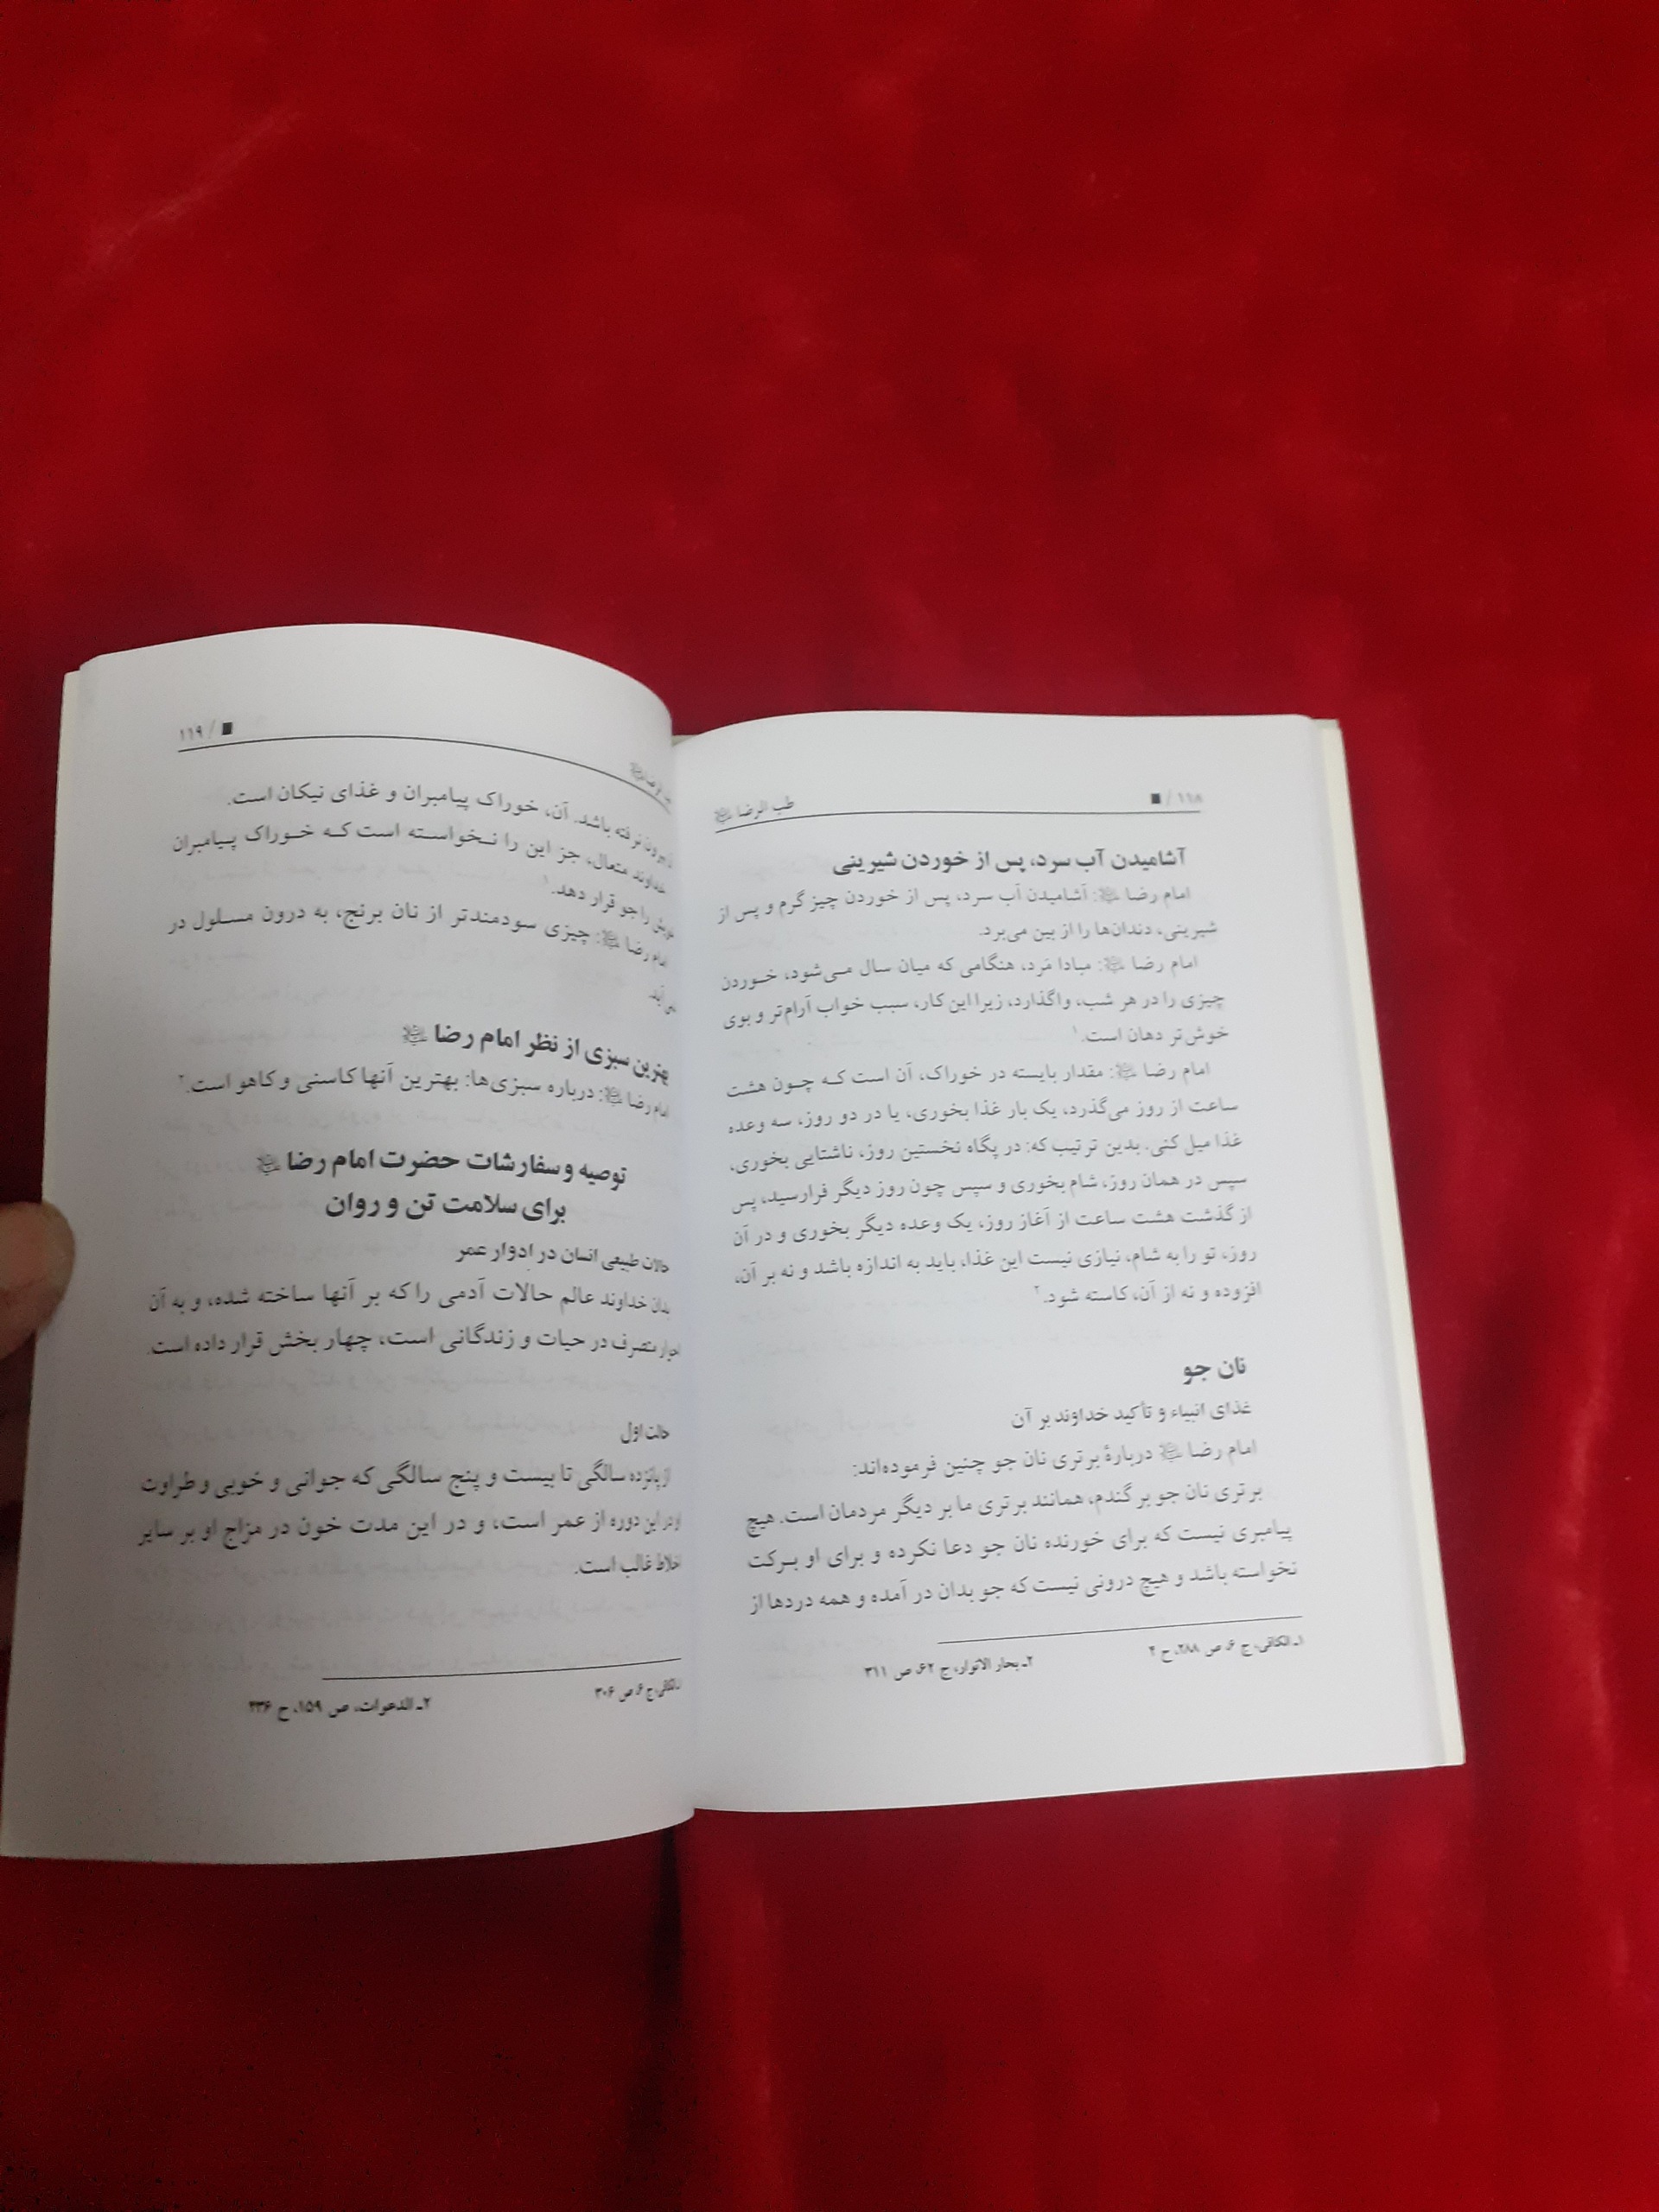 ۱۱۸ / ■ طب الرضا
آشامیدن آب سرد، پس از خوردن شیرینی
امام رضا : آشامیدن آب سرد، پس از خوردن چیز گرم و پس از
شیرینی، دندان‌ها را از بین می‌برد.
امام رضا : مبادا مَرد، هنگامی که میان سال می‌شود، خوردن
چیزی را در هر شب، واگذارد، زیرا این کار، سبب خواب آرام‌تر و بوی
خوش‌تر دهان است.۱
امام رضا : مقدار بایسته در خوراک، آن است که چون هشت
ساعت از روز می‌گذرد، یک بار غذا بخوری، یا در دو روز، سه وعده
غذا میل کنی. بدین ترتیب که: در پگاه نخستین روز، ناشتایی بخوری،
سپس در همان روز، شام بخوری و سپس چون روز دیگر فرارسید، پس
از گذشت هشت ساعت از آغاز روز، یک وعده دیگر بخوری و در آن
روز، تو را به شام، نیازی نیست این غذا، باید به اندازه باشد و نه بر آن،
افزوده و نه از آن، کاسته شود.۲
نان جو
غذای انبیاء و تأکید خداوند بر آن
امام رضا دربارهٔ برتری نان جو چنین فرموده‌اند:
برتری نان جو بر گندم، همانند برتری ما بر دیگر مردمان است. هیچ
پیامبری نیست که برای خورنده نان جو دعا نکرده و برای او برکت
نخواسته باشد و هیچ درونی نیست که جو بدان در آمده و همه دردها از
۱ـ الکافی، ج ۶، ص ۲۸۸، ح ۴ ۲ـ بحار الانوار، ج ۶۲، ص ۳۱۱
■ / ۱۱۹
نرفته باشد. آن، خوراک پیامبران و غذای نیکان است.
خداوند متعال، جز این را نخواسته است که خوراک پیامبران
را جو قرار دهد.۱
امام رضا : چیزی سودمندتر از نان برنج، به درون مسلول در
بهترین سبزی از نظر امام رضا
امام رضا : درباره سبزی‌ها: بهترین آنها کاسنی و کاهو است.۲
توصیه و سفارشات حضرت امام رضا
برای سلامت تن و روان
حالات طبیعی انسان در ادوار عمر
بدان خداوند عالم حالات آدمی را که بر آنها ساخته شده، و به آن
متصرف در حیات و زندگانی است، چهار بخش قرار داده است.
حالت اول
از پانزده سالگی تا بیست و پنج سالگی که جوانی و خوبی و طراوت
او در این دوره از عمر است، و در این مدت خون در مزاج او بر سایر
اخلاط غالب است.
ج ۶، ص ۳۰۶ ۲ـ الدعوات، ص ۱۵۹، ح ۴۳۶